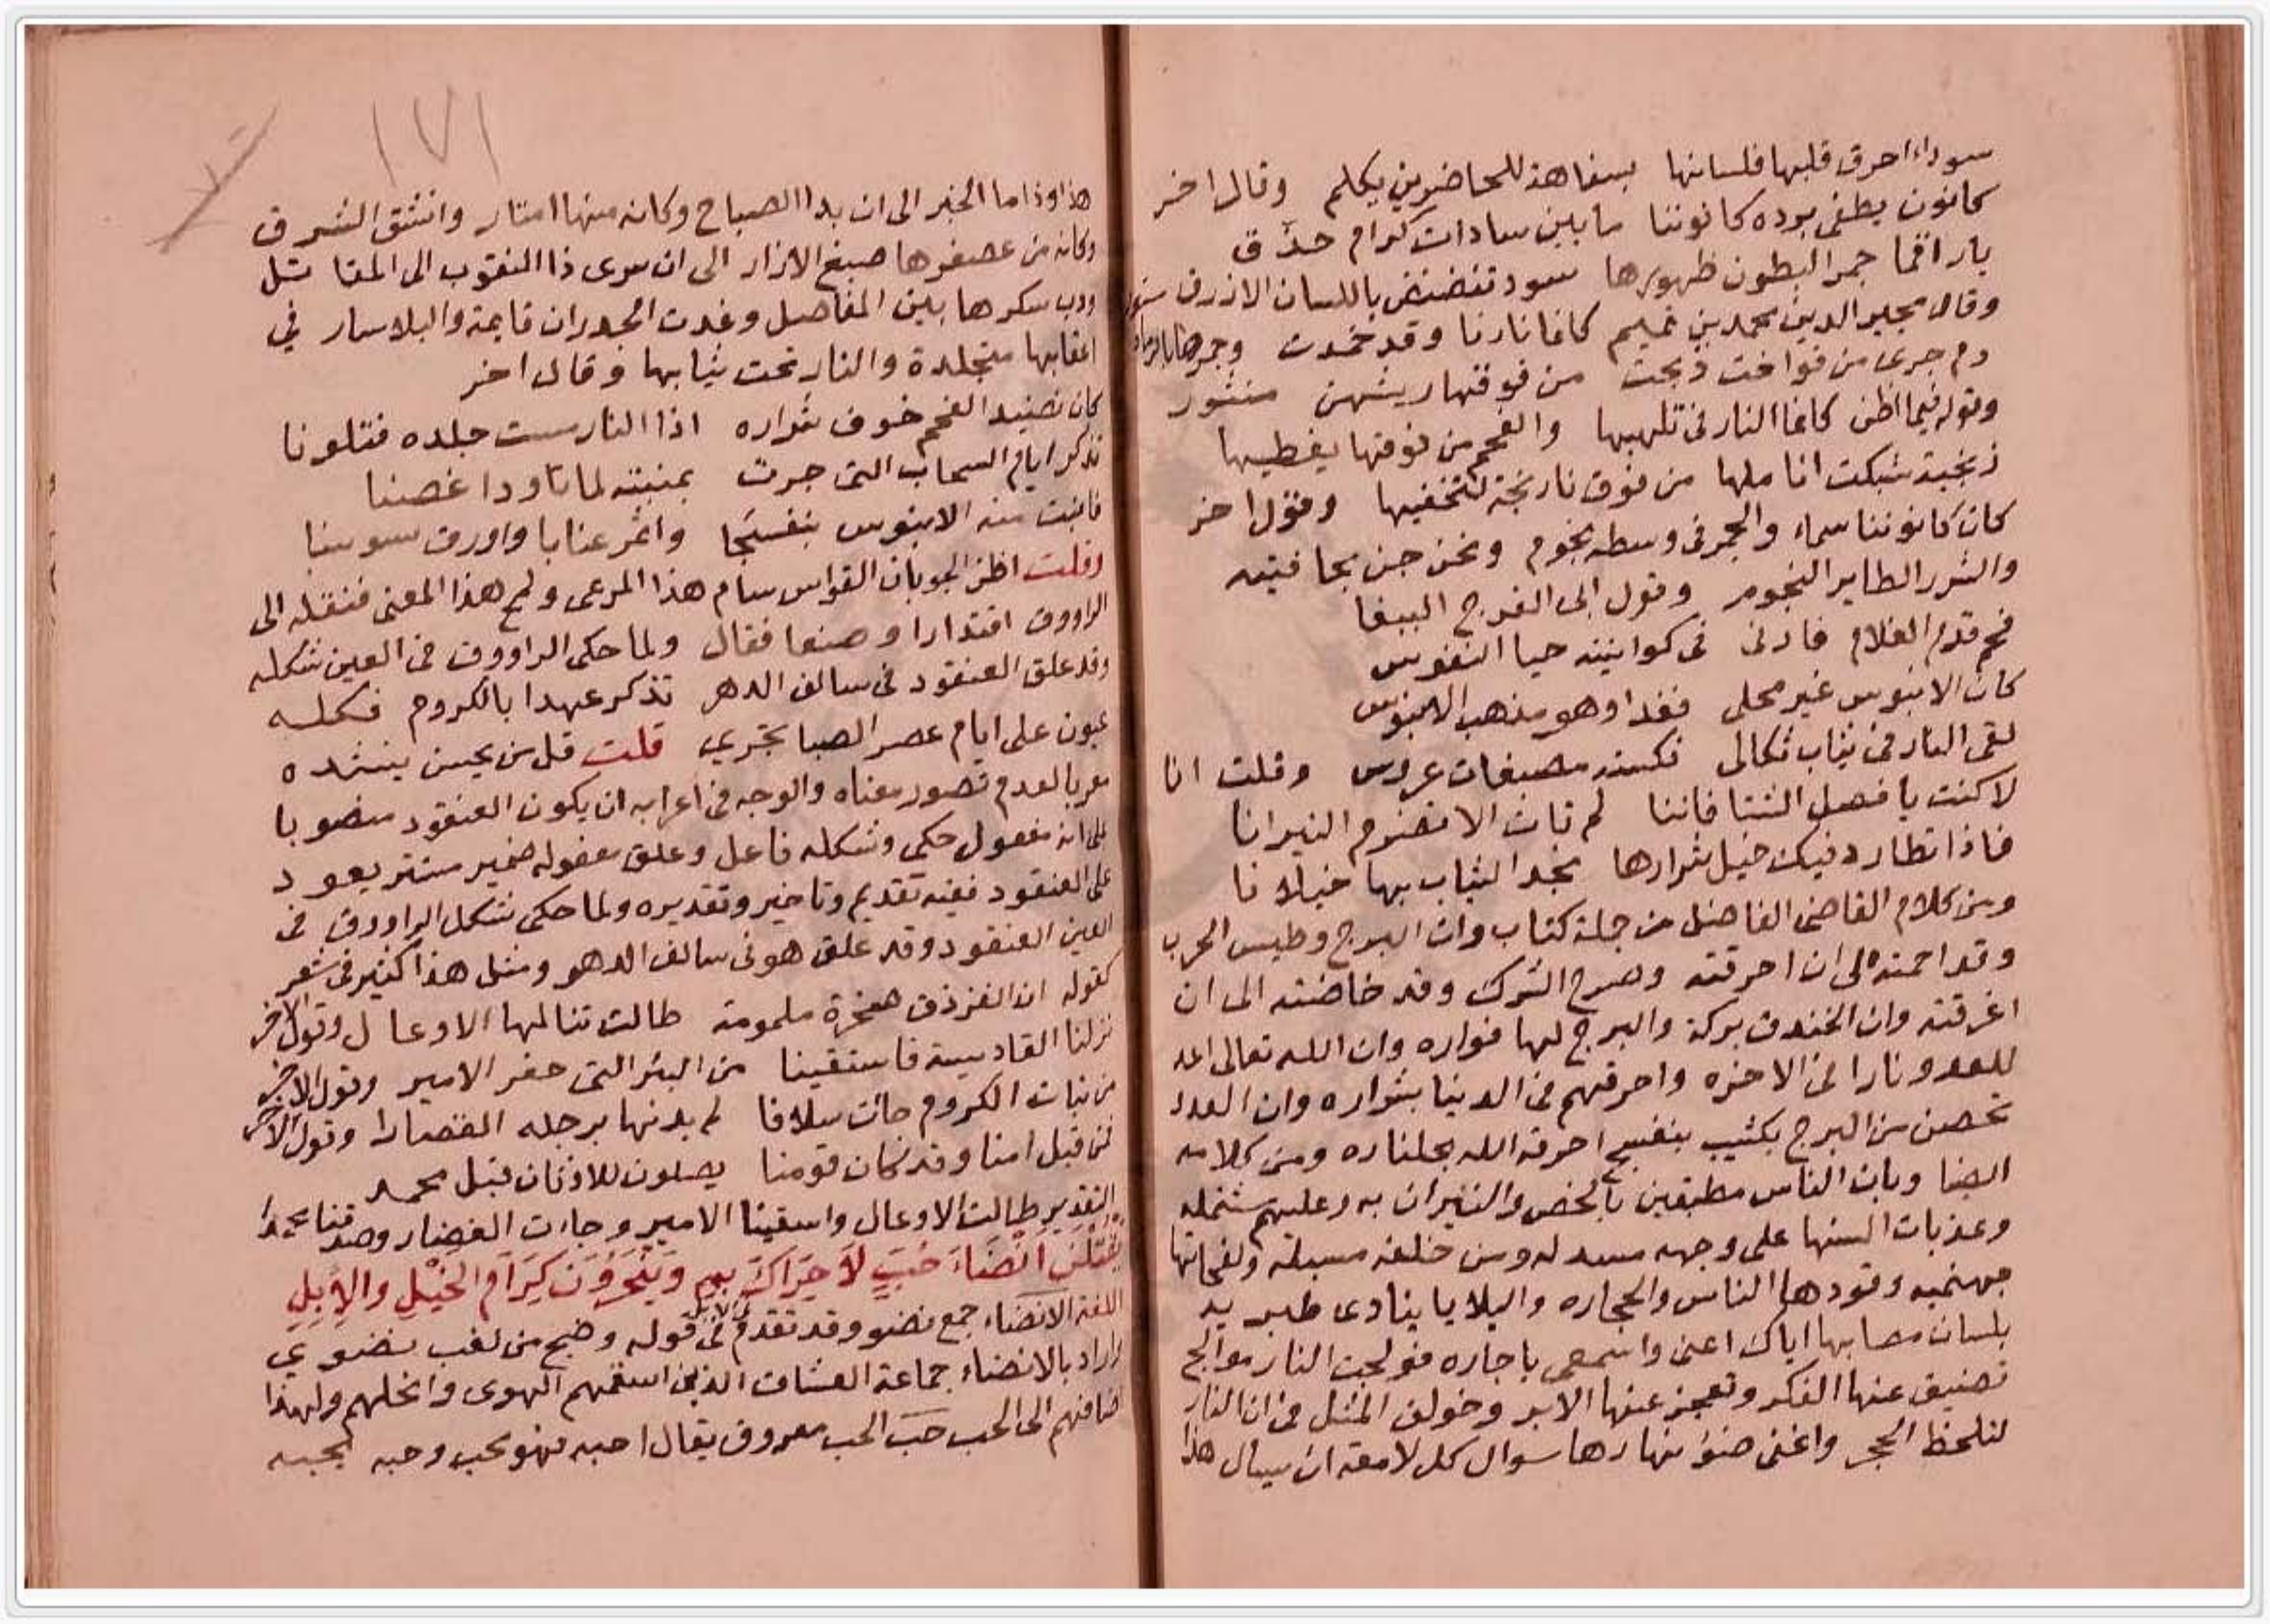 سوداء احرق قلبها فلسانها بسفاهة للحاضرين يكلم وقال اخر
كانون يطفى برده كانوننا ما بين سادات كرام حذق
باراقما حمر البطون ظهورها سود تنضنض باللسان الازرق
وقال مجير الدين محمد بن تميم كانما نارنا وقد خمدت وجمرها بالرماد
دم جرى من فواخت ذبحت من فوقها ريشهن منثور
وقوله فيما اظن كانما النار فى تلهبها والفحم من فوقها يغطيها
زنجية شبكت اناملها من فوق نارنجة لتخفيها وقول اخر
كان كانوننا سماء والجمر فى وسطه نجوم ونحن جن بجا فتيه
والشرر الطاير النجوم وقول ابى الفرج الببغا
فحم قدم الغلام فادنى فى كوانينه حيا النفوس
كان الابنوس غير محلى فغدا وهو مذهب الابنوس
لقى النار فى ثياب ثكالى فكسته مصبغات عروس وقلت انا
لا كنت يا فصل الشتا فاننا لم تات الا تضرم النيرانا
فاذا تطارد فيك خيل شرارها تجد الثياب بها خيلانا
ومن كلام القاضى الفاضل من جملة كتاب وان البرج وطيس الحرب
وقد احمته الى ان احرقته وصرح الشرك وقد خاضته الى ان
اغرقته وان الخندق بركة والبرج لها فواره وان الله تعالى اعد
للعدو نارا فى الاخره واحرقهم فى الدنيا بشراره وان العدد
تحصن من البرج بكثيب بنفسج احرقه الله بجلناره ومن كلامه
ايضا وبات الناس مطبقين بالحصن والنيران به وعليهم مشتمله
وعذبات السنها على وجهه مسدله ومن خلفه مسبلة ولفحاتها
جهنميه وقودها الناس والحجاره والبلايا ينادى طبريه
بلسان مصابها اياك اعنى واسمعى ياجاره فولجت النار موالج
تضيق عنها الفكر وتعجز عنها الابر وخولف المثل فى ان النار
لتلحظ الحجر واغنى ضوء نهارها سوال كل لامعة ان يسال هذا
١٧١
هذا وذا ما الخبر الى ان بدا الصباح وكانه منها امتار وانشق الشرق
وكانه من عصفرها صبغ الازار الى ان سرى ذا النقوب الى المقاتل
ودب سكرها بين المفاصل وغدت الجدران قايمة والبلاسار فى
اعقابها متجلدة والنار تحت ثيابها وقال اخر
كان نضيد الفحم خوف شراره اذا النار مست جلده فتلونا
تذكر ايام السحاب التى جرت بمنبته لما تاودا غصنا
فانبت منه الابنوس بنفسجا واثمر عنابا واورق سوسنا
وقلت اظن الجوبان القواس سام هذا المرعى ولمح هذا المعنى فنقله الى
الراووق اقتدارا وصنعا فقال ولما حكى الراووق فى العين شكله
وقد علق العنقود فى سالف الدهر تذكر عهدا بالكروم فكله
عيون على ايام عصر الصبا تجري قلت قل من يحسن ينشده
معربا لعدم تصور معناه والوجه فى اعرابه ان يكون العنقود منصوبا
على انه مفعول حكى وشكله فاعل وعلق مفعوله ضمير مستتر يعود
على العنقود ففيه تقديم وتاخير وتقديره ولما حكى شكل الراووق فى
العين العنقود وقد علق هو فى سالف الدهر ومثل هذا كثير فى شعر
كقوله ان الفرزدق صخرة ملمومة طالت تنالها الاوعال وقول الاخر
نزلنا القادسية فاستقينا من البئر التى حفر الامير وقول الاخر
من نبات الكروم حانت سلافا لم يدنها برجله القصارا وقول الاخر
لن قبل امنا وقد كان قومنا يصلون للاوثان قبل محمد
التقدير طالت الاوعال واسقينا الامير وجات القصار وصدقنا محمدا
يَقْتُلْنَ اَنْضَاءَ حُبٍّ لاَ حَرَاكَ بِهِمِ وَيَنْحَرُونَ كِرَامَ الْخَيْلِ وَالاِبِلِ
اللغة الانضاء جمع نضو وقد تقدم فى قوله وضج من لغب نضوي
واراد بالانضاء جماعة العشاق الذين اسقمهم الهوى وانحلهم ولهذا
اضافهم الى الحب حب الحب معروف يقال احبه فهو محب وحبه يحبه